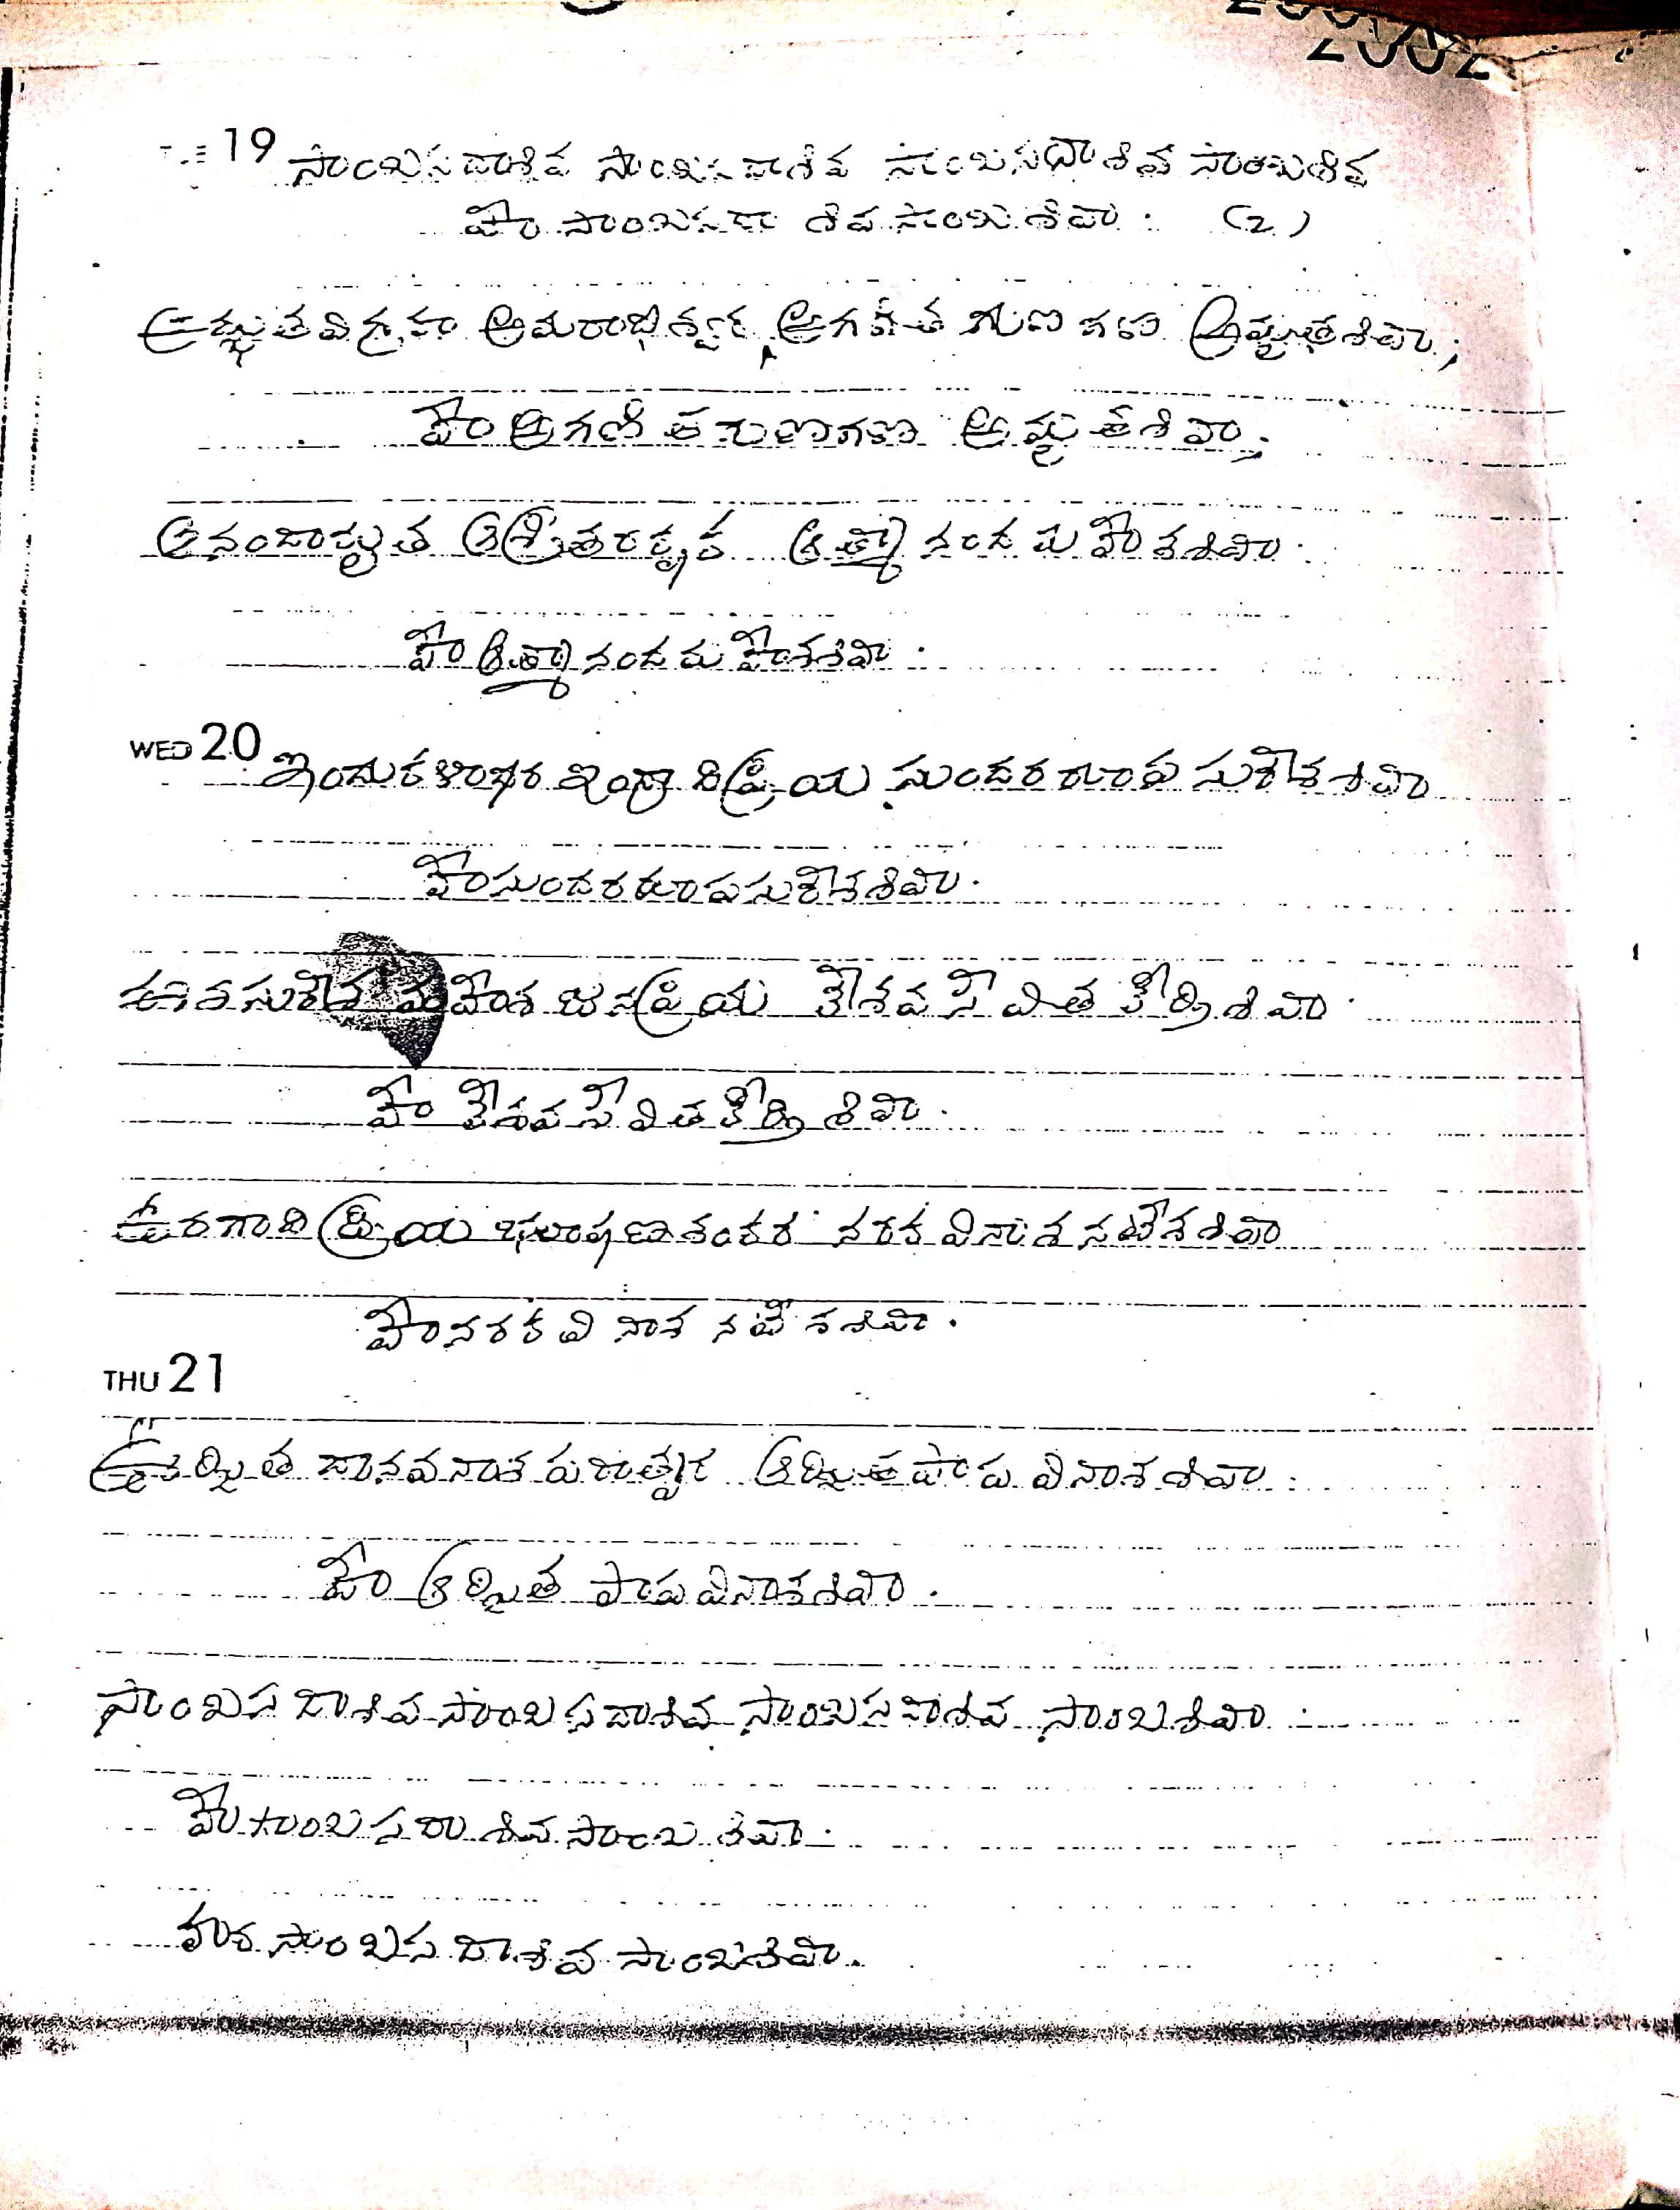 2002
TUE 19 సాంబసదాశివ సాంబసదాశివ సాంబసధాశివ సాంబశివ
హే సాంబసదా శివ సాంబశివా. (2)
అద్భుతవిగ్రహ అమరాధీశ్వర అగణిత గుణ గణ అమృతశివా;
హే అగణితగుణగణ అమృతశివా.
ఆనందామృత ఆశ్రితరక్షక ఆత్మానంద మహేశశివా.
హే ఆత్మానందమహేశశివా.
WED 20 ఇందుకళాధర ఇంద్రాదిప్రియ సుందరరూప సురేశశివా
హేసుందరరూపసురేశశివా.
ఈశసురేశ మహేశ జనప్రియ కేశవ సేవిత కీర్తిశివా.
హే కేశవసేవితకీర్తి శివా.
ఉరగాదిప్రియ భూషణశంకర నరక వినాశ నటేశశివా
హేనరక వినాశ నటేశశివా.
THU 21
ఊర్జిత దానవనాశ పరాత్పర ఆర్జితపాప వినాశశివా.
హే ఆర్జిత పాపవినాశశివా.
సాంబస దాశివ సాంబసదాశివ సాంబసదాశివ సాంబశివా.
హే సాంబసదా శివ సాంబశివా.
హర సాంబస దాశివ సాంబశివా.